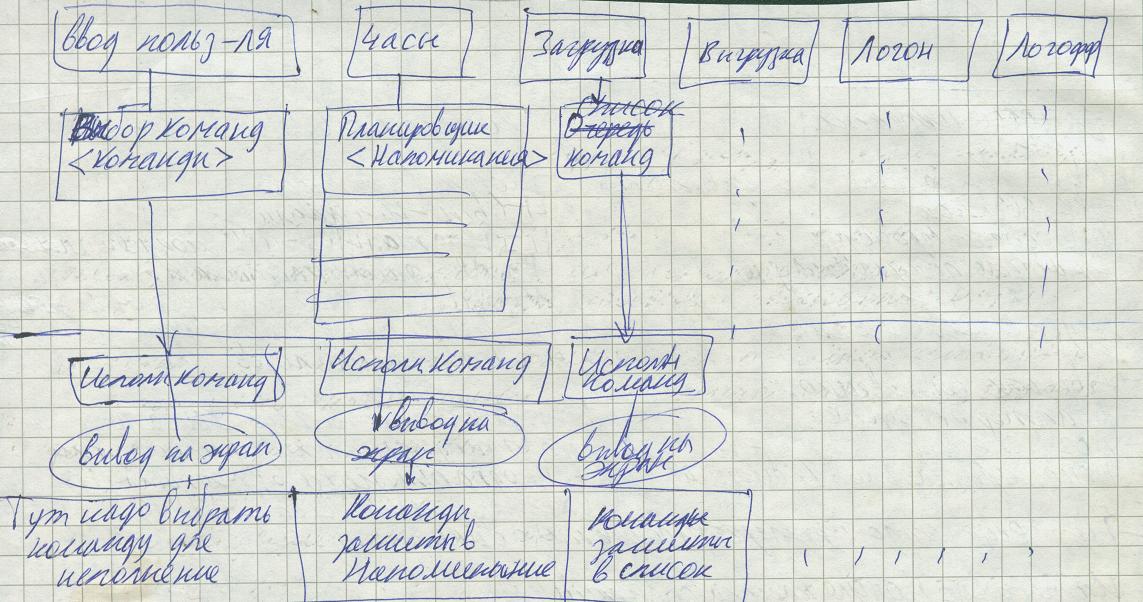 Ввод польз-ля
Часы
Загрузка
Выгрузка
Логон
Логофф
Выбор команд
<Команды>
Планировщик
<Напоминания>
Список
Очередь
команд
Исполн команд
Исполн команд
Исполн
команд
Вывод на экран
Вывод на
экран
Вывод на
экран
Тут надо выбрать
команду для
исполнение
Команды
зашиты в
Напоминание
Команды
зашиты
в список